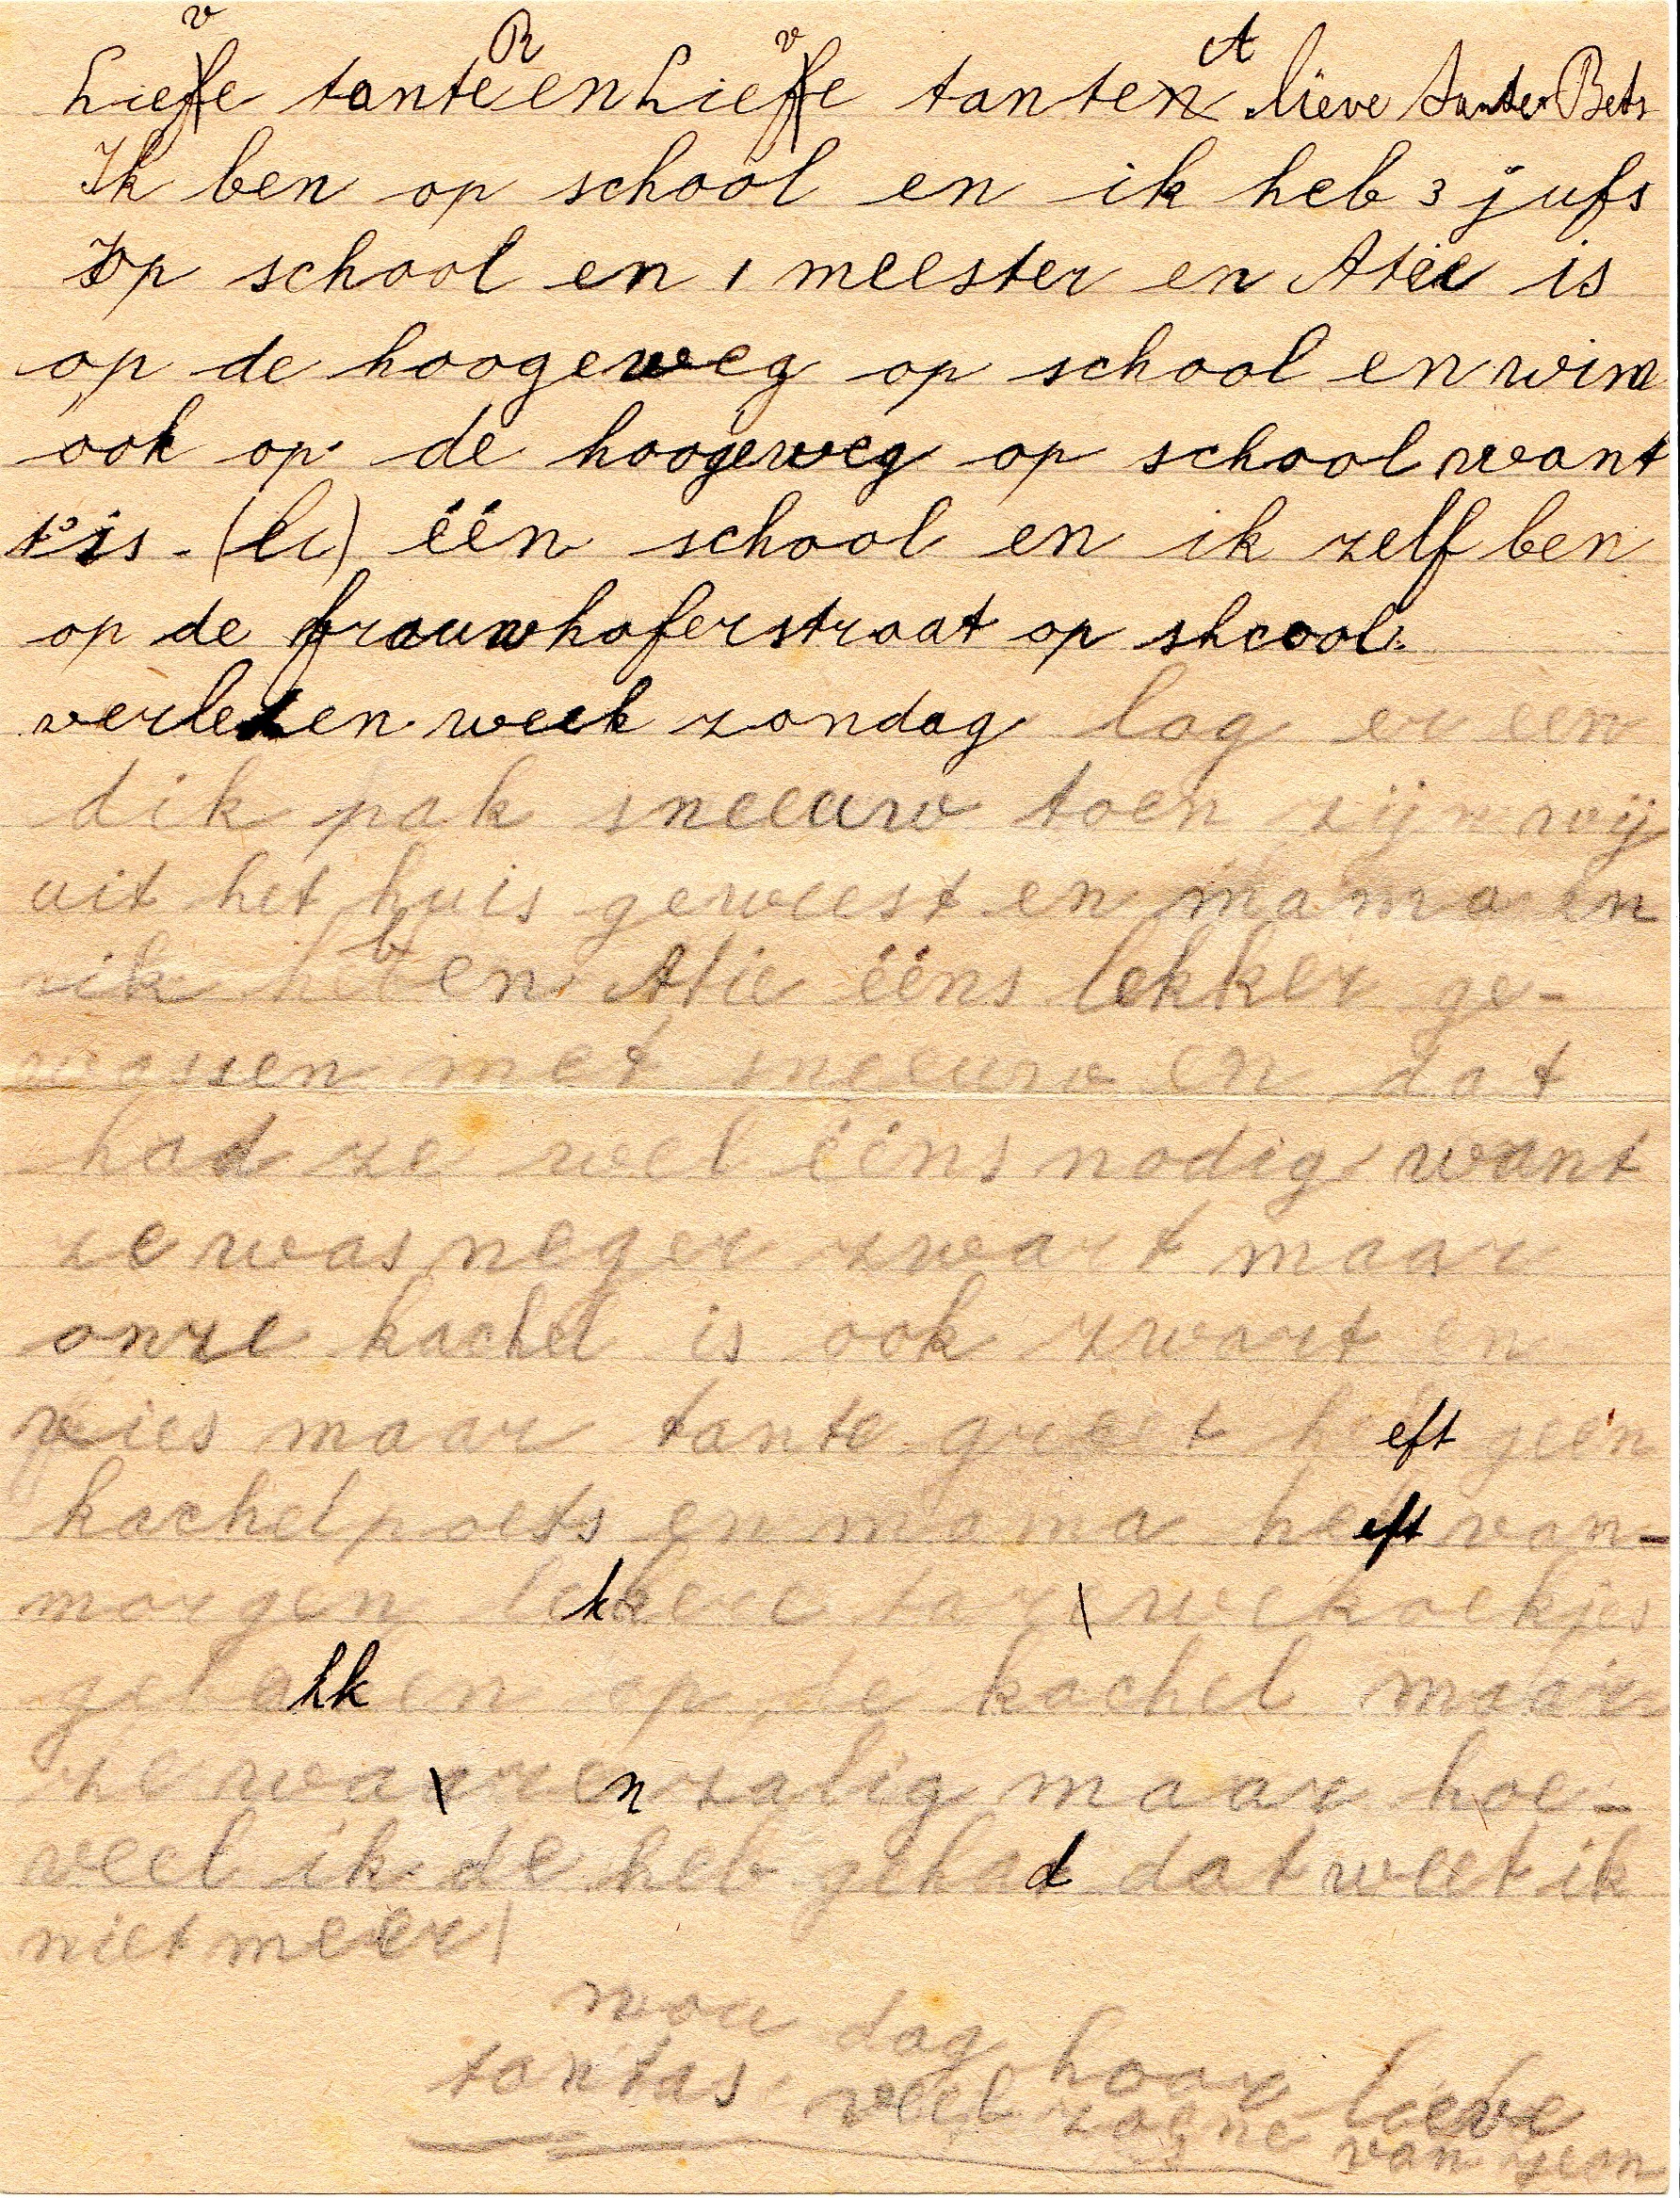 Lieve tante R en Lieve tante A lieve tante Bets
Ik ben op school en ik heb 3 jufs
op school en 1 meester en Atie is
op de hoogeweg op school en wim
ook op de hoogeweg op school want
t's is - (ei) één school en ik zelf ben
op de frauwhoferstraat op shcool.
verleten week zondag lag er een
dik pak sneeuw toen zijn wij
uit het huis geweest en mama en
ik hebben Atie ééns lekker ge-
wassen met sneeuw en dat
had ze wel ééns nodig want
ze was neger zwart maar
onze kachel is ook zwart en
vies maar tante greet heeft geen
kachelpoets en mama heeft van-
morgen lekkere tarwekoekjes
gebakken op de kachel maar
ze waren zalig maar hoe-
veel ik de heb gehad dat weet ik
niet meer!
nou dag hoor lieve
tantas veel zoene van jean